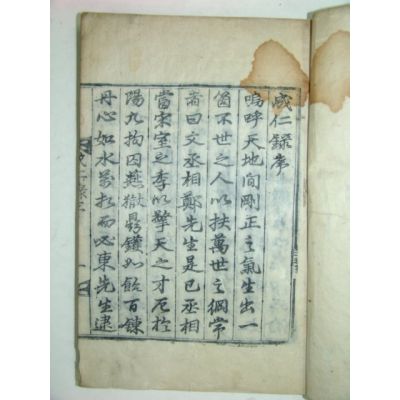 成仁錄序
嗚呼天地間剛正之氣生出一
箇不世之人以扶萬世之綱常
者曰文丞相鄭先生是已丞相
當宋室之季以擎天之才厄於
陽九拘囚燕獄鼎鑊如飴百鍊
丹心如水萬折而必東先生逮
成仁錄